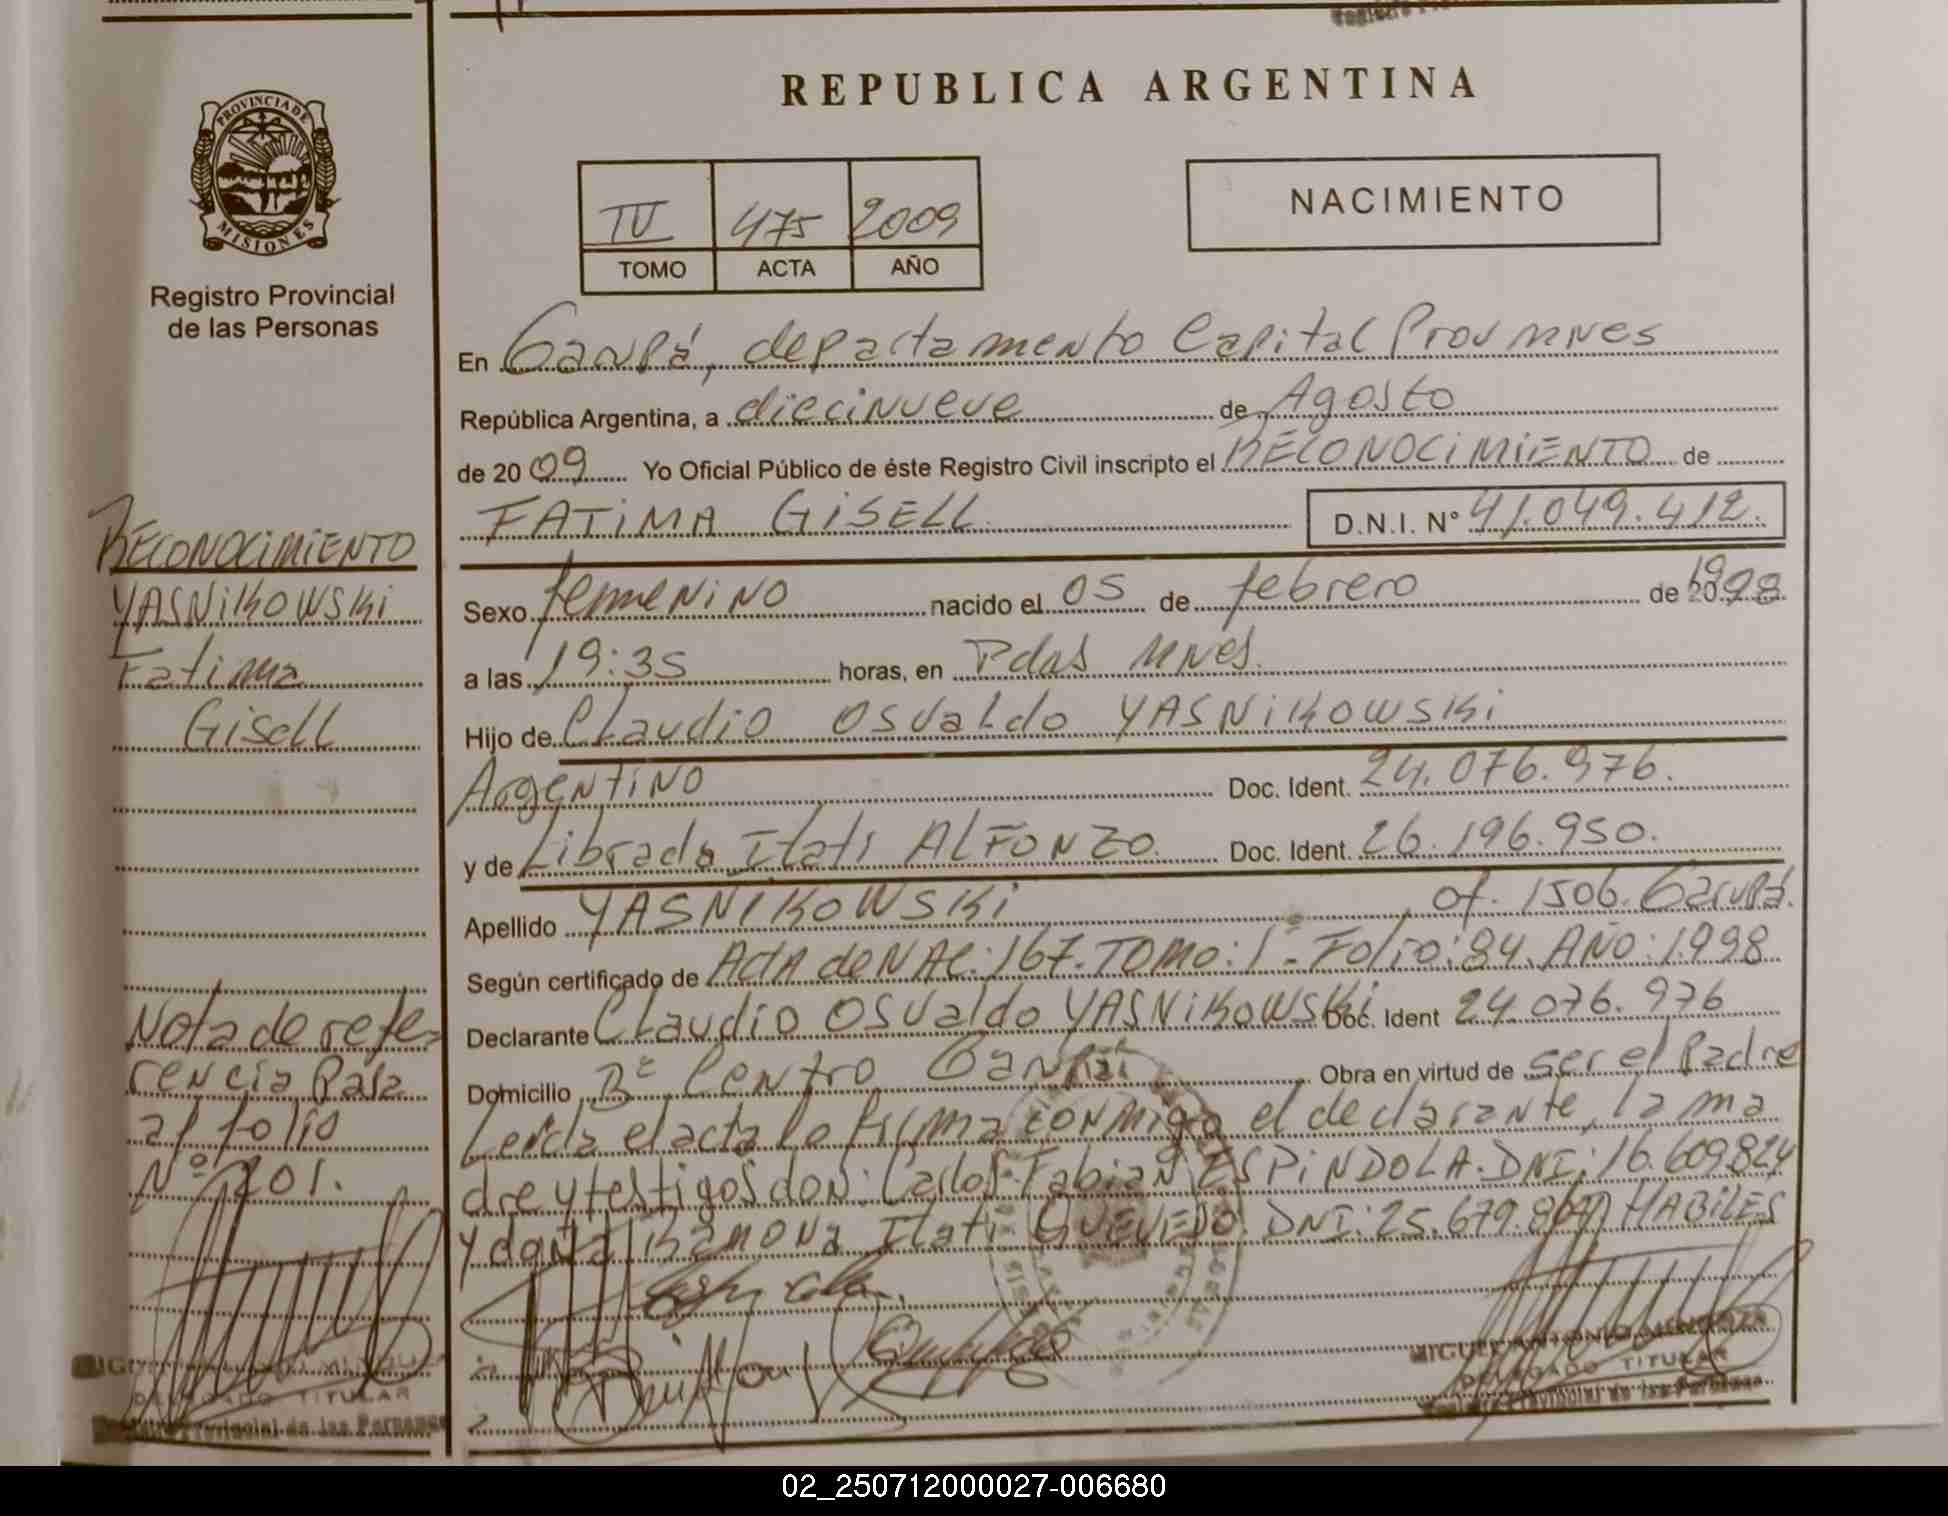 REPUBLICA ARGENTINA
PROVINCIA DE
MISIONES
Registro Provincial
de las Personas
IV 475 2009
TOMO ACTA AÑO
NACIMIENTO
En Garupá, departamento Capital Prov Mnes
República Argentina, a diecinueve de Agosto
de 2009 Yo Oficial Público de éste Registro Civil inscripto el RECONOCIMIENTO de
FATIMA GISELL D.N.I. N° 41.049.412.
Sexo femenino nacido el 05 de febrero de 1998
a las 19:35 horas, en Pdas Mnes.
Hijo de Claudio Osvaldo YASNIKOWSKI
Argentino Doc. Ident. 24.076.976.
y de Librada Itati ALFONZO. Doc. Ident. 26.196.950.
Apellido YASNIKOWSKI of. 1506. Garupá.
Según certificado de Acta de NAC: 167. TOMO: 1º - Folio: 84. AÑO: 1.998
Declarante Claudio Osvaldo YASNIKOWSKI Doc. Ident 24.076.976
Domicilio Bº Centro Garupá Obra en virtud de ser el Padre
Leida el acta la firma conmigo el declarante, la ma
dre y testigos don: Carlos Fabian ESPINDOLA. DNI: 16.609.824
y doña Ramona Itati QUEVEDO. DNI: 25.679. HABILES
RECONOCIMIENTO
YASNIKOWSKI
Fatima
Gisell
Nota de refe-
rencia Pasa
al folio
Nº 201.
MIGUEL ANTONIO MENDOZA
DELEGADO TITULAR
Registro Provincial de las Personas
DELEGADO TITULAR
Registro Provincial de las Personas
02_250712000027-006680